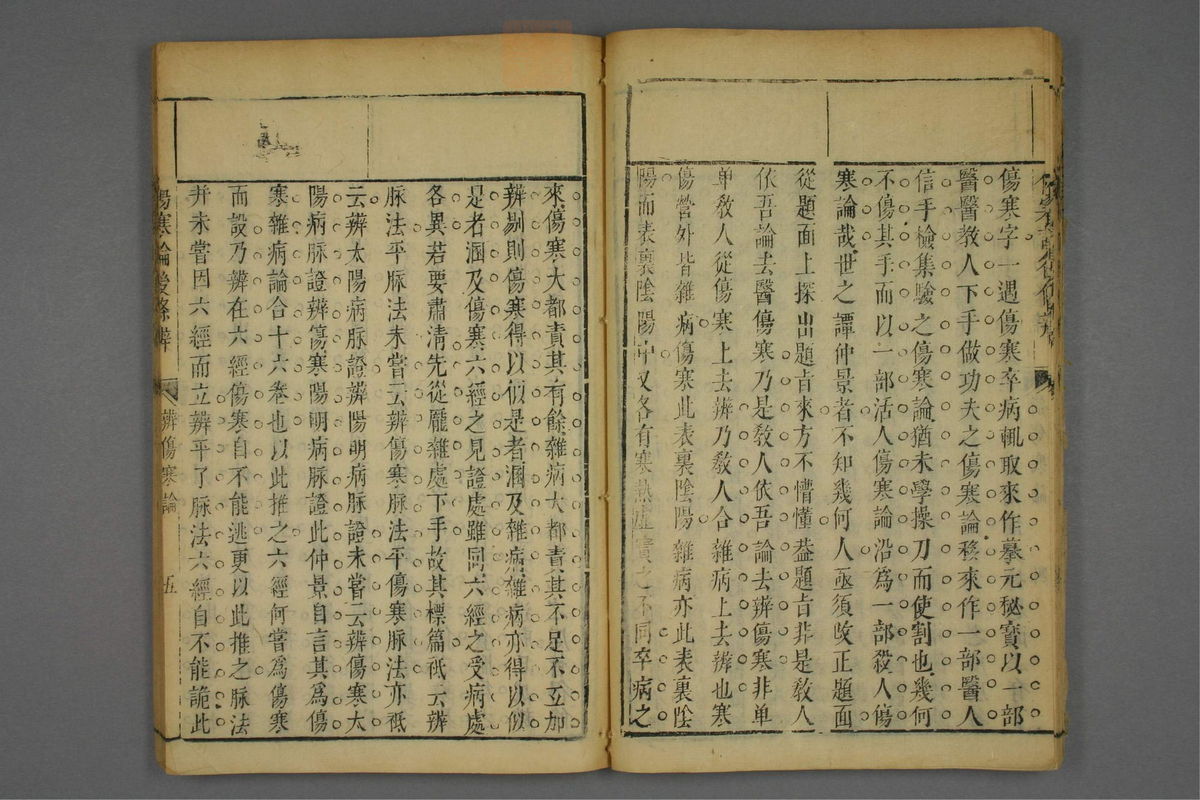 傷寒字一遇傷寒卒病輒取來作摹元秘寶以一部
醫醫教人下手做功夫之傷寒論移來作一部醫人
信手檢集驗之傷寒論猶未學操刀而使割也幾何
不傷其手而以一部活人傷寒論沿為一部殺人傷
寒論哉世之譚仲景者不知幾何人亟須改正題面
從題面上探出題旨來方不懵懂葢題旨非是敎人
依吾論去醫傷寒乃是敎人依吾論去辨傷寒非单
单敎人從傷寒上去辨乃敎人合雜病上去辨也寒
傷營外皆雜病傷寒此表裏陰陽雜病亦此表裏陰
陽而表裏陰陽中又各有寒熱虛實之不同卒病之
來傷寒大都責其有餘雜病大都責其不足不立加
辨剔則傷寒得以似是者溷及雜病雜病亦得以似
是者溷及傷寒六經之見證處雖同六經之受病處
各異若要肅清先從龐雜處下手故其標篇秪云辨
脉法平脉法未嘗云辨傷寒脉法平傷寒脉法亦秪
云辨太陽病脉證辨陽明病脉證未嘗云辨傷寒太
陽病脉證辨傷寒陽明病脉證此仲景自言其為傷
寒雜病論合十六卷也以此推之六經何嘗為傷寒
而設乃辨在六經傷寒自不能逃更以此推之脉法
并未嘗因六經而立辨平了脉法六經自不能詭此
傷寒論後條辨
辨傷寒論
五